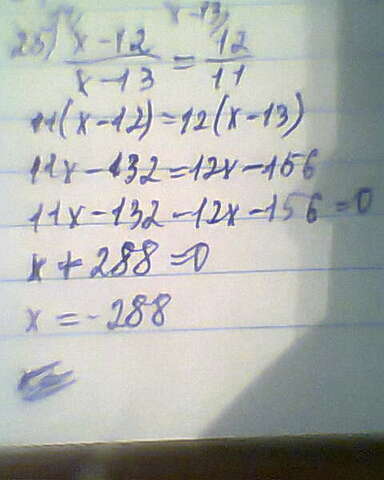 x-13,
25) x-12 / x-13 = 12 / 11
11(x-12)=12(x-13)
11x-132=12x-156
11x-132-12x-156=0
x+288=0
x=-288